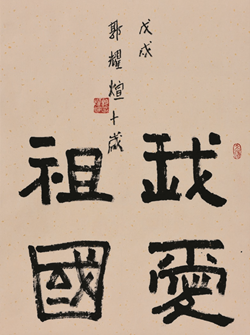 我愛
祖國
戊戌
郭耀煊十歲